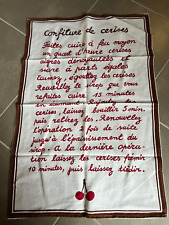 Confiture de cerises
Faites cuire à feu moyen
un quart d'heure cerises
aigres dénoyautées et
sucre à parts égales
Laissez, égouttez les cerises
Recueillez le sirop que vous
refaites cuire 15 minutes
en écumant. Rajoutez les
cerises, laissez bouillir 5 min.
puis retirez-les. Renouvelez
l'opération 2 fois de suite
jusqu'à l'épaississement du
sirop. A la dernière opéra-
tion laissez les cerises frémir
10 minutes, puis laissez tiédir.